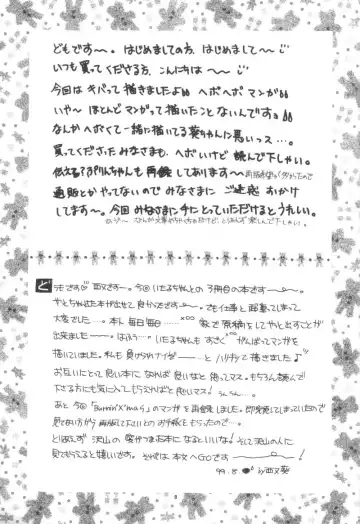 どもです〜。はじめましての方、はじめまして〜
いつも買ってくださる方、こんにちは〜
今回はキバって描きましたよぉ ヘボヘボマンガ
いや〜ほとんどマンガって描いたことないんですョ
なんかヘボくて一緒に描いてる葵ちゃんに悪いっス…。
買ってくださったみなさまも、ヘボいけど 読んで下しゃい。
ぷりんちゃんも再録しております〜
通販とかやってないのでみなさまに ご迷惑 おかけ
してます〜。今回 みなさまに手にとっていただけるとうれしい。
どうもです 西又です〜。今回 いたるちゃんとの
やっとちゃんとした本が出せて 良かったです〜。でも仕事と
大変でした…。本トに毎日毎日… 家で原稿
出来ました〜。いたるちゃんも すごく がんばってマンガを
描いていました。私も 負けられナイゾ〜 とハリキって描きました♪
お互いにとって 良い本に なれば 良いなと 思ってマス。もちろん読んで
下さる方にも 気に入ってもらえればと 思いマス！
あと 今回「Burnin'X'mas」のマンガを再録しました。即完売してしまっていたので
見てない方から 再版してたいとの お手紙ももらったので…。
とりあえず 沢山の 方に
見てもらえると 嬉しいです。それでは 本文へGOです〜！
99.8 by西又葵